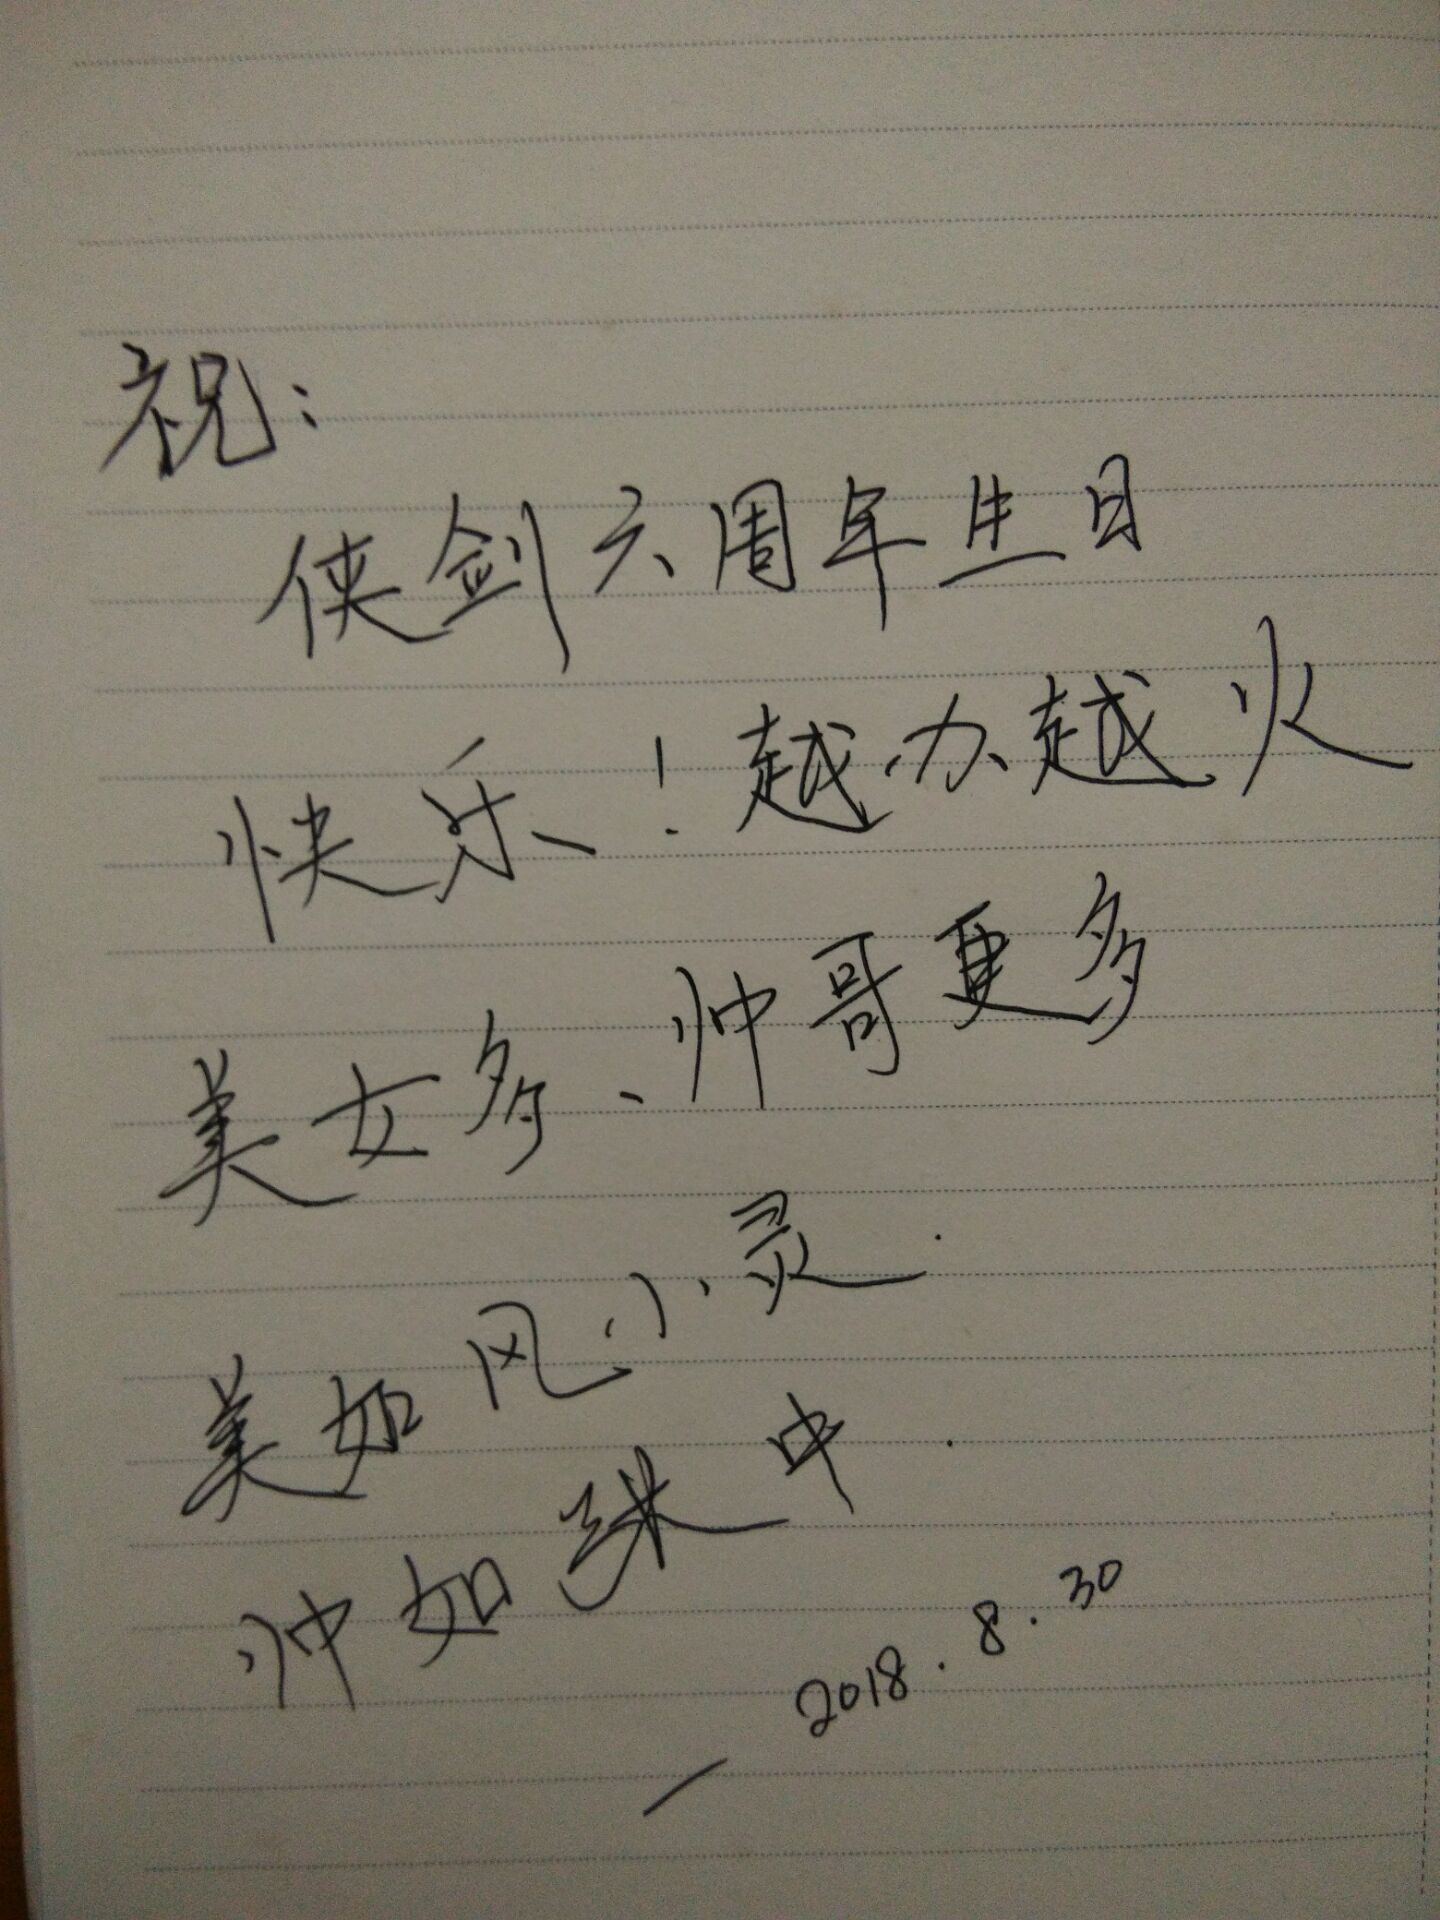 祝：
侠剑六周年生日
快乐！越办越火
美女多、帅哥更多
美如风小灵.
帅如 中.
2018.8.30